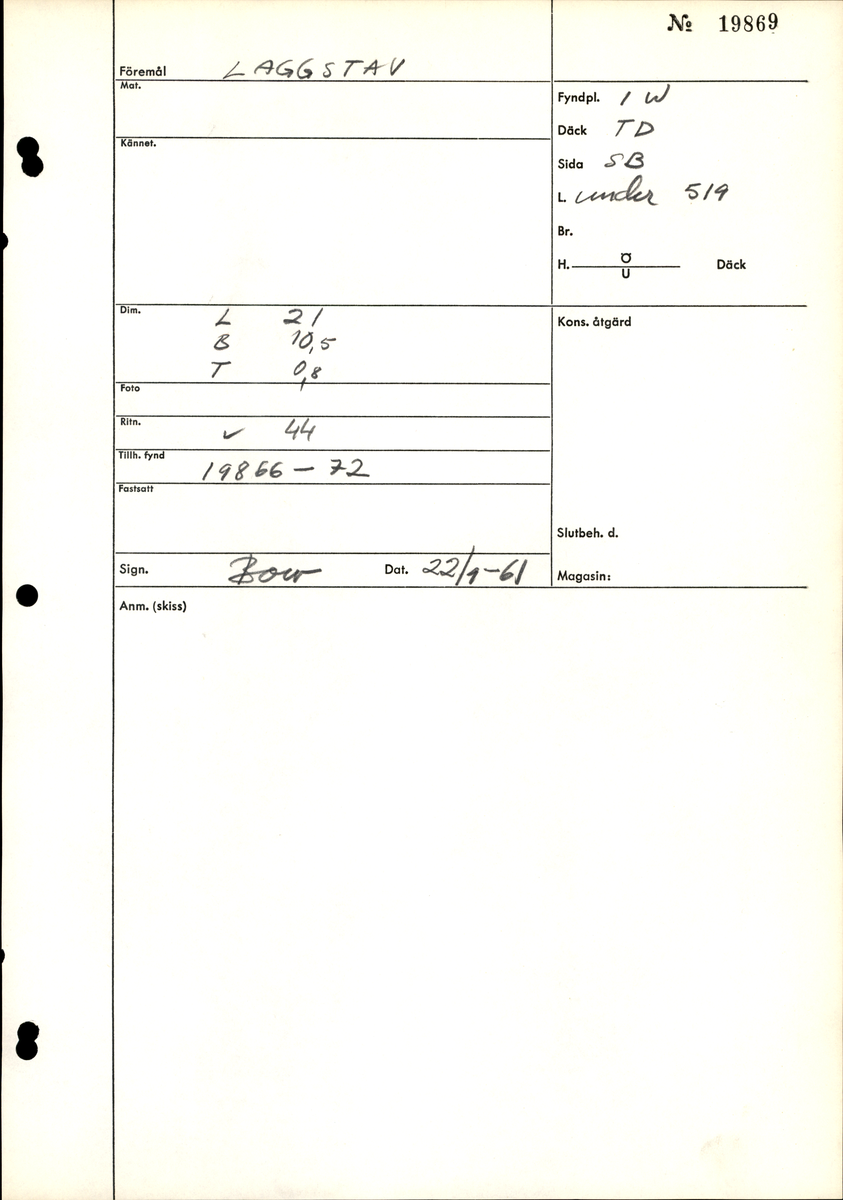 № 19869
Föremål LAGGSTAV
Mat.
Kännet.
Fyndpl. 1 W
Däck TD
Sida SB
L. under 519
Br.
H. Ö Däck
U
Dim. L 21
B 10,5
T 0,8
Foto
Ritn. ✓ 44
Tillh. fynd 19866 – 72
Fastsatt
Sign. Bow Dat. 22/9-61
Kons. åtgärd
Slutbeh. d.
Magasin:
Anm. (skiss)